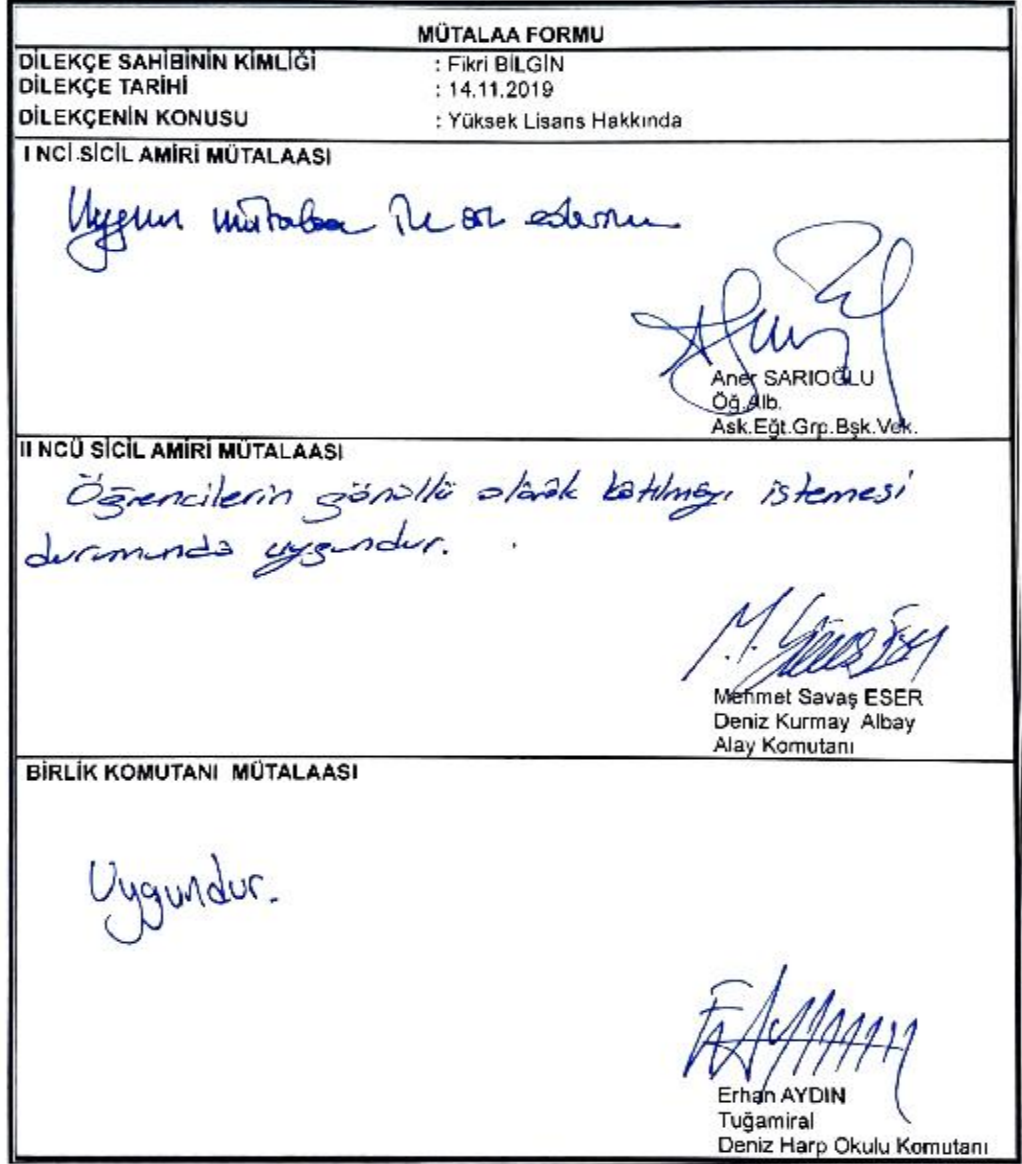 MÜTALAA FORMU
DİLEKÇE SAHİBİNİN KİMLİĞİ : Fikri BİLGİN
DİLEKÇE TARİHİ : 14.11.2019
DİLEKÇENİN KONUSU : Yüksek Lisans Hakkında
I NCİ SİCİL AMİRİ MÜTALAASI
Uygun mütalaa ile arz ederim
Aner SARIOĞLU
Öğ.Alb.
Ask.Eğt.Grp.Bşk.Vek.
II NCÜ SİCİL AMİRİ MÜTALAASI
Öğrencilerin gönüllü olarak katılmayı istemesi
durumunda uygundur.
Mehmet Savaş ESER
Deniz Kurmay Albay
Alay Komutanı
BİRLİK KOMUTANI MÜTALAASI
Uygundur.
Erhan AYDIN
Tuğamiral
Deniz Harp Okulu Komutanı